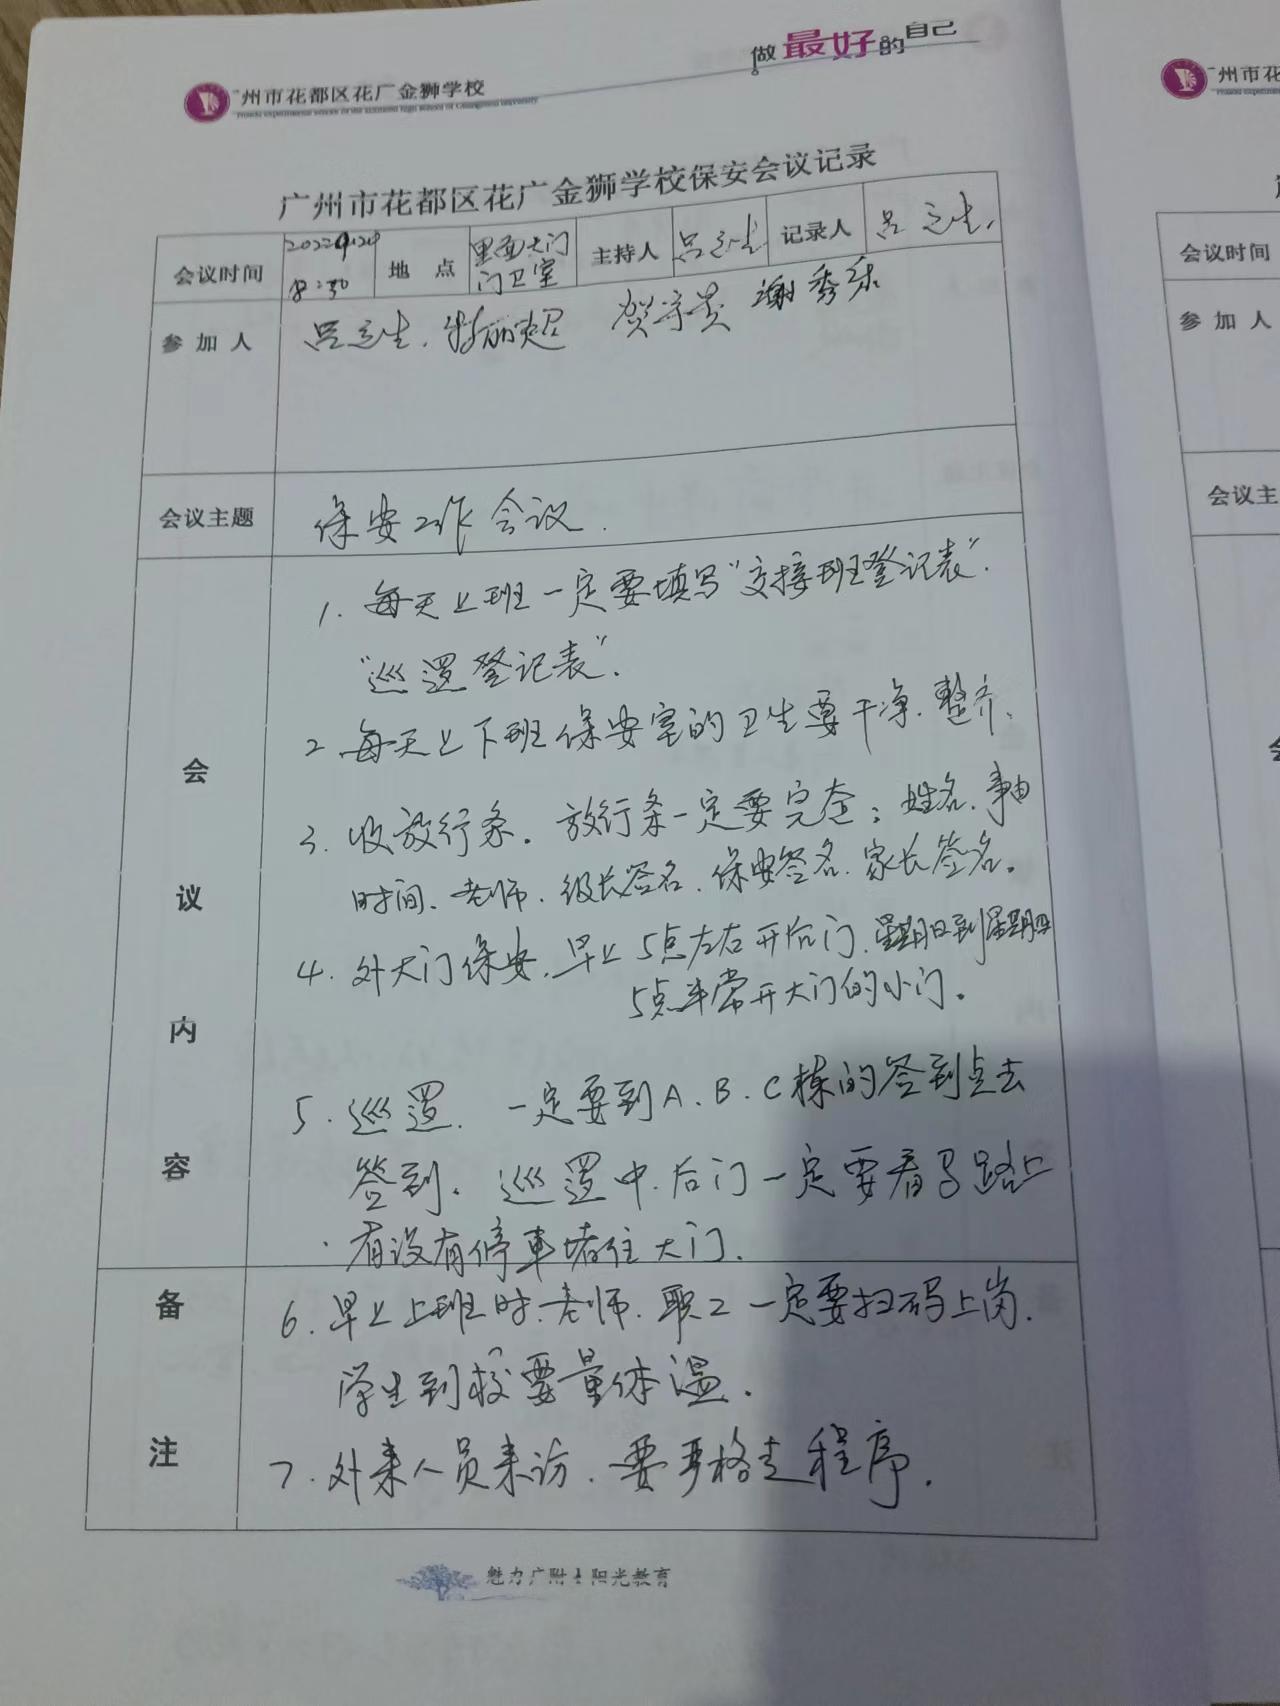 做最好的自己
广州市花都区花广金狮学校
广州市花都区花广金狮学校保安会议记录
会议时间 8:30 地点 里面大门门卫室 主持人 吕志生 记录人 吕志生.
参加人 吕志生. 谢秀乐
会议主题 保安工作会议.
会议内容
1. 每天上班一定要填写"交接班登记表".
"巡逻登记表".
2. 每天上下班保安室的卫生要干净.整齐.
3. 收放行条. 放行条一定要完全: 姓名.事由
时间. 老师. 级长签名. 保安签名. 家长签名。
4. 外大门保安. 早上5点左右开后门. 星期日到星期四
5点半常开大门的小门。
5. 巡逻. 一定要到A.B.C栋的签到点去
签到. 巡逻中.后门一定要看马路上
有没有停车堵住大门.
备注
6. 早上上班时.老师.职工一定要扫码上岗.
学生到校要量体温.
7. 外来人员来访. 要严格走程序.
魅力广附 阳光教育
州市花
会议时间
参加人
会议主